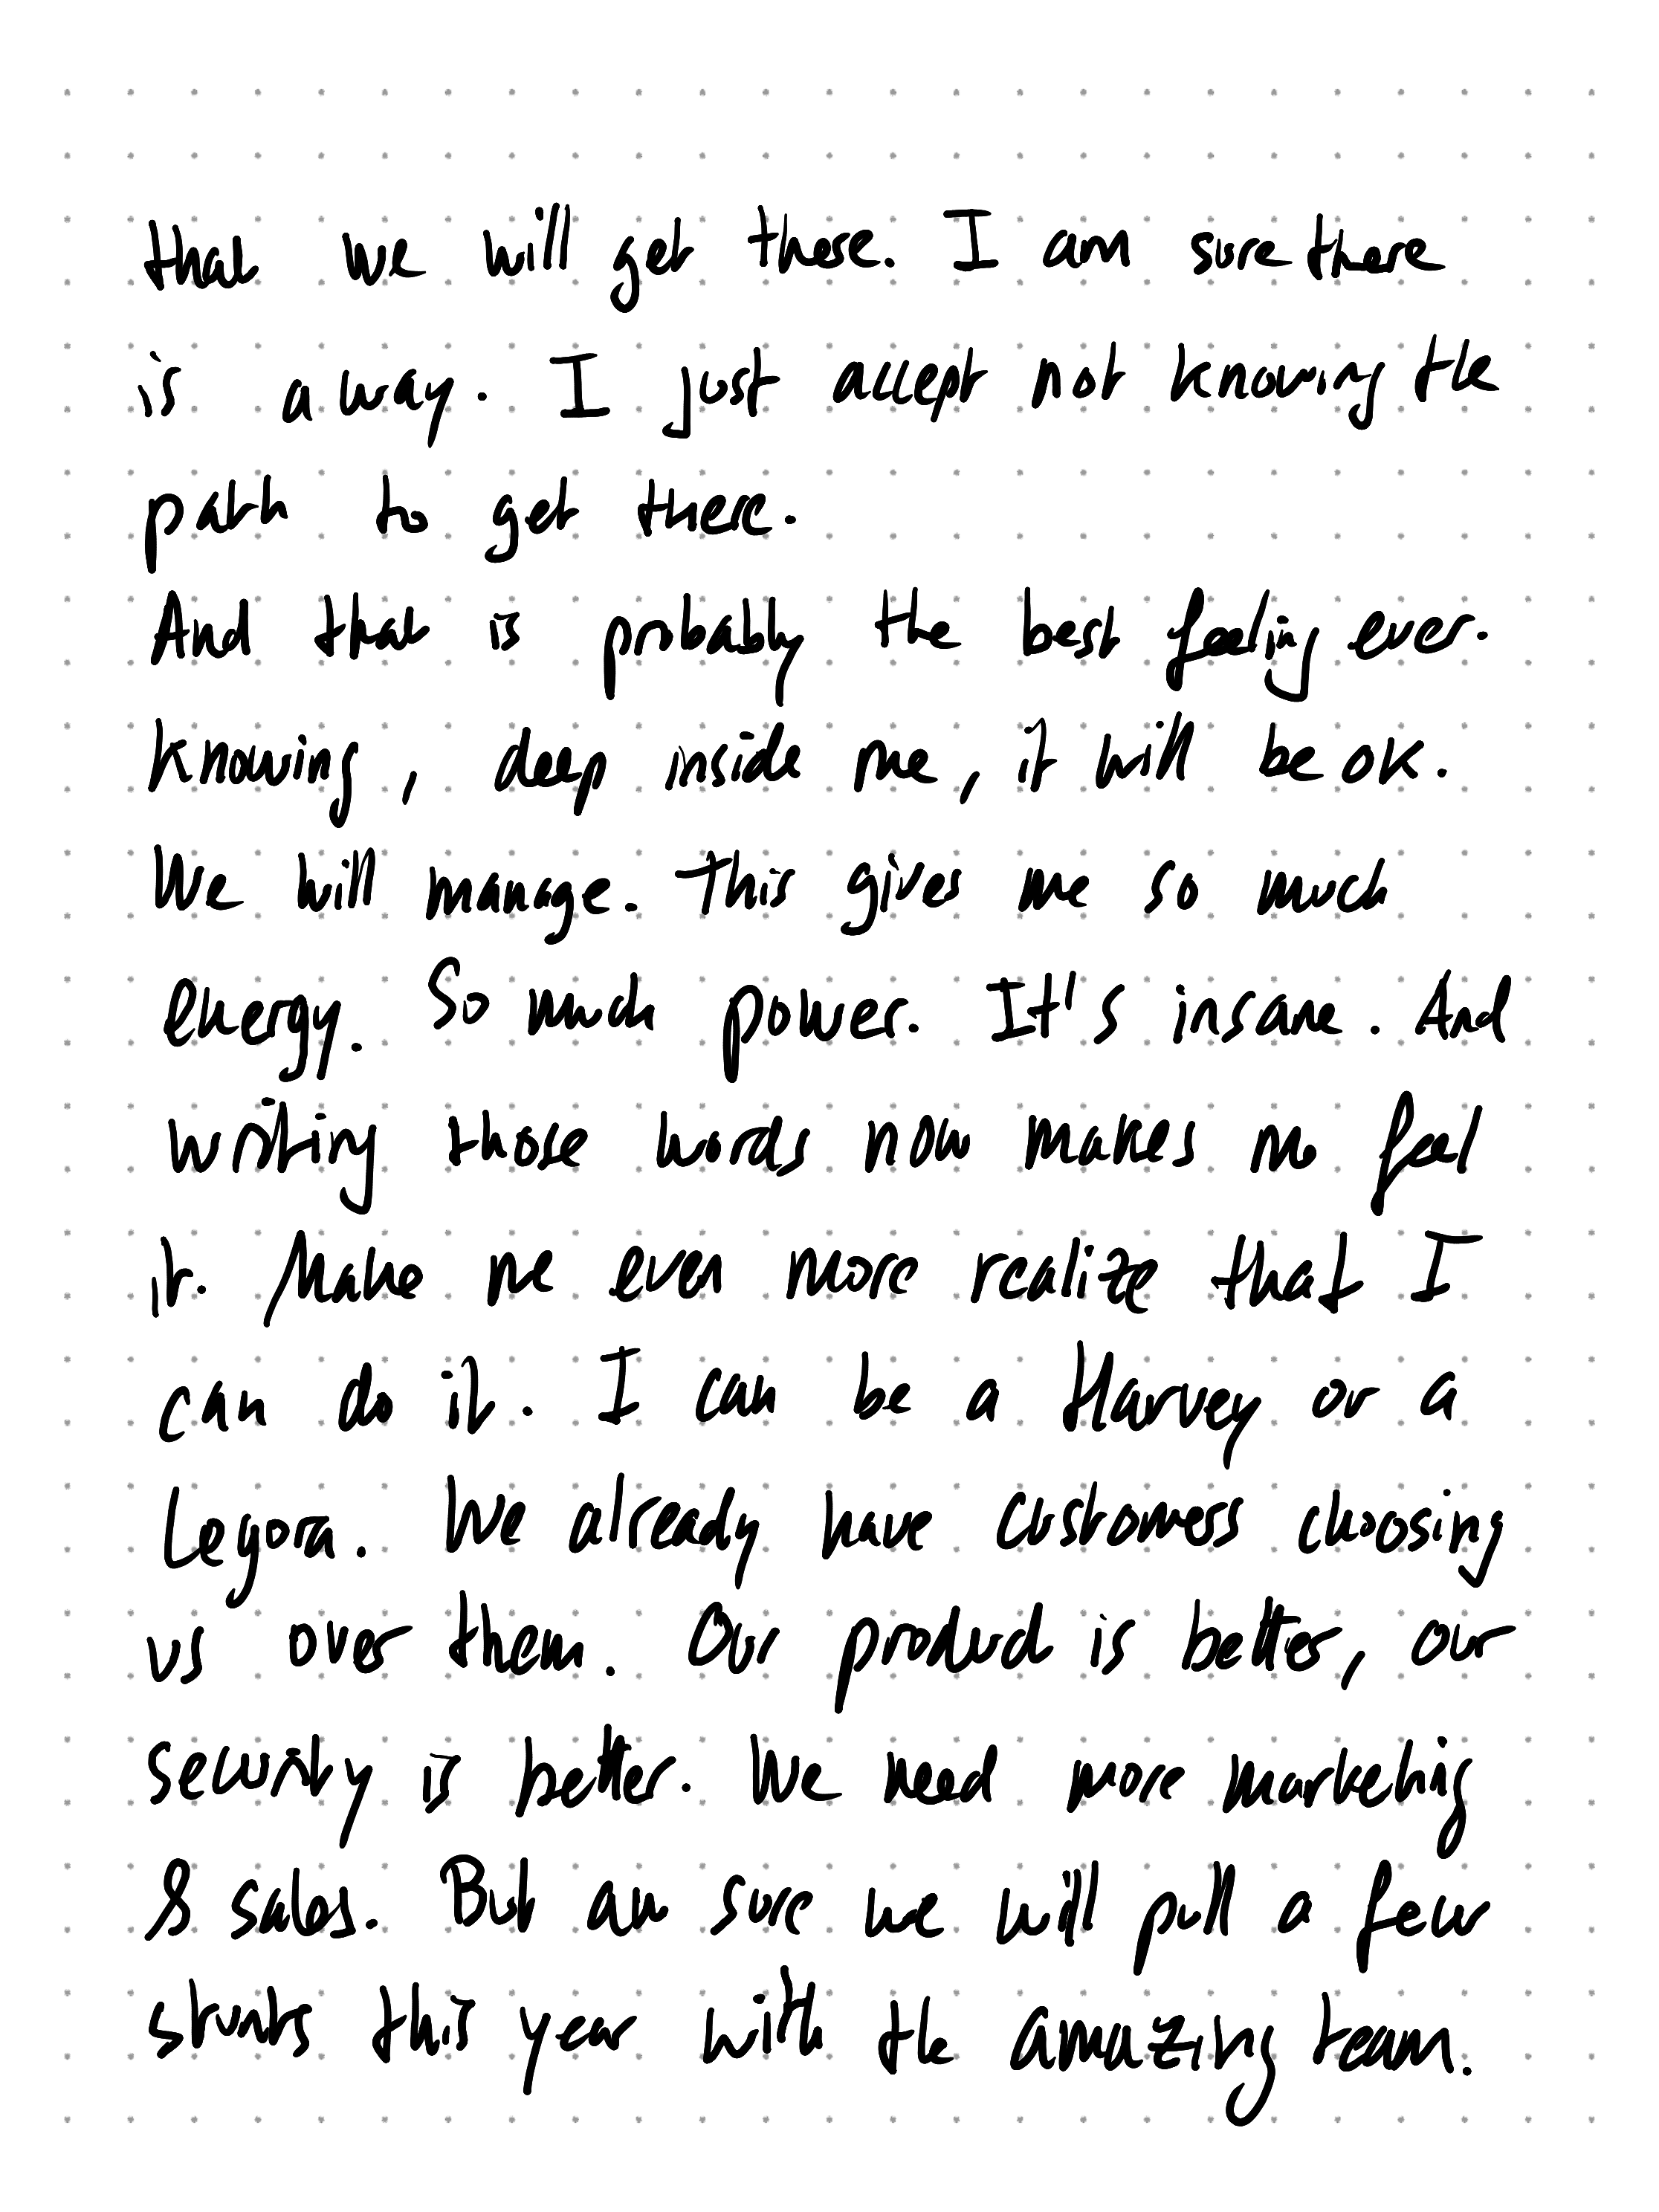 that we will get there. I am sure there
is a way. I just accept not knowing the
path to get there.
And that is probably the best feeling ever.
Knowing, deep inside me, it will be ok.
We will manage. This gives me so much
energy. So much power. It's insane. And
writing those words now makes me feel
it. Make me even more realize that I
can do it. I can be a Harvey or a
Legora. We already have customers choosing
us over them. Our product is better, our
security is better. We need more marketing
& sales. But am sure we will pull a few
stunts this year with the amazing team.